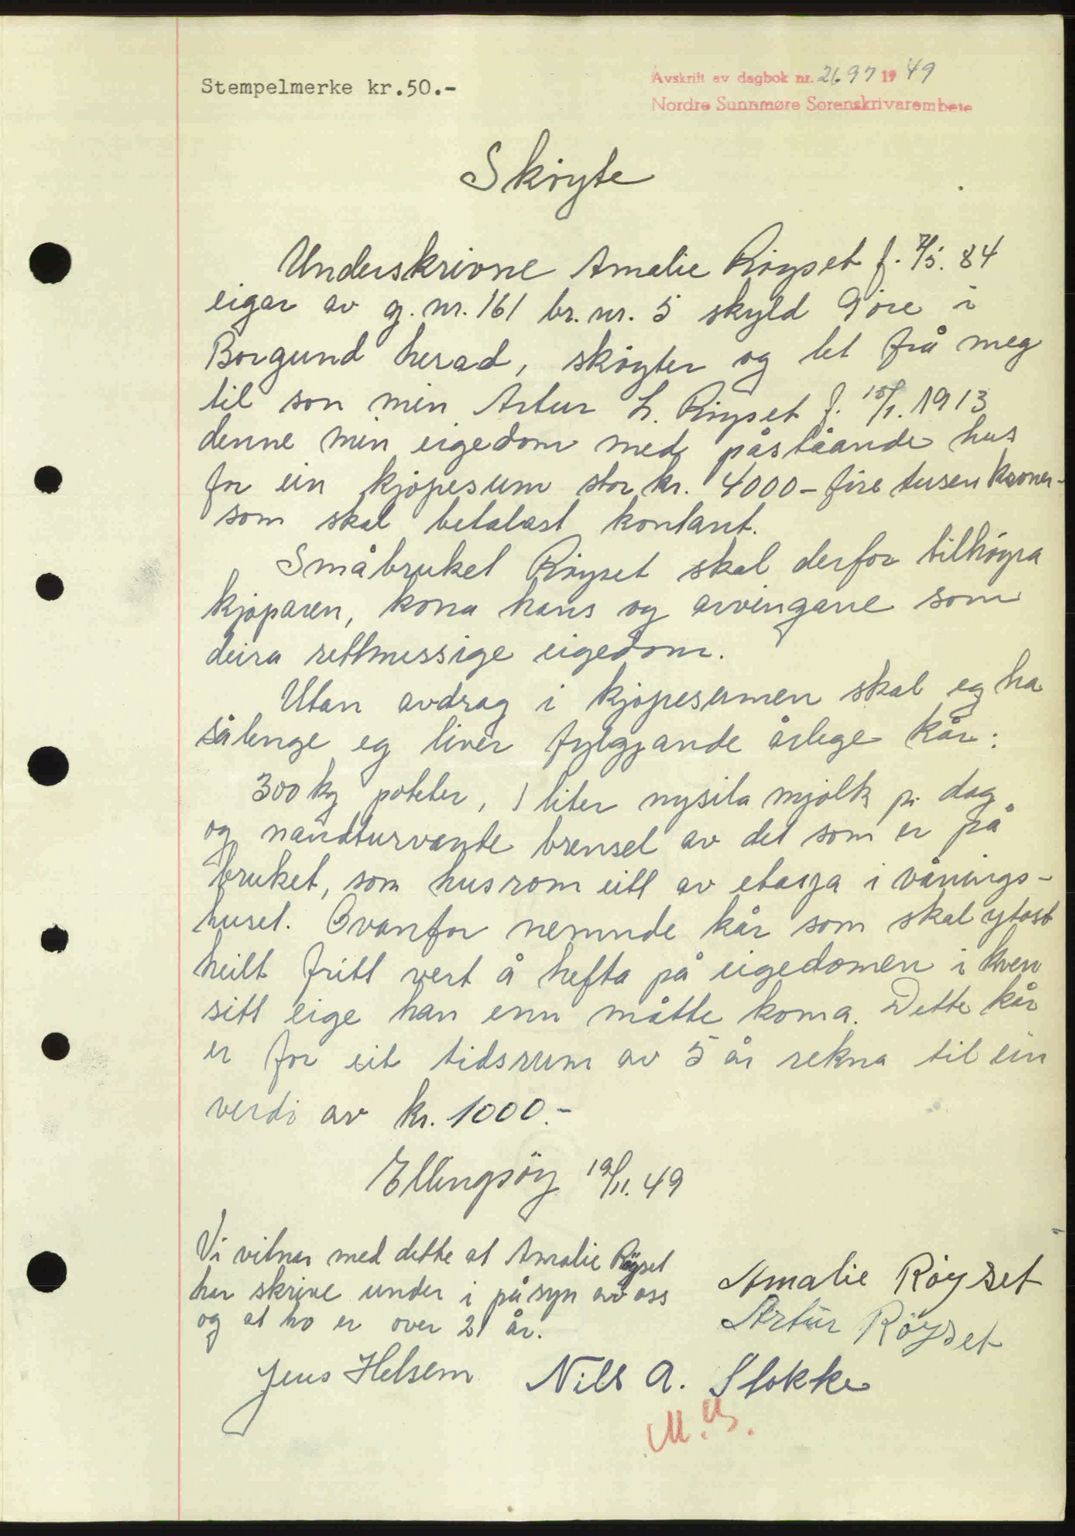 Stempelmerke kr.50.-
Avskrift av dagbok nr. 2697 1949
Nordre Sunnmøre Sorenskrivarembete
Skøyte
Underskrivne Amalie Røyset f. 7/5. 84
eigar av g. nr. 161 br. nr. 5 skyld 9 øre i
Borgund herad, skøyter og let frå meg
til son min Artur L. Røyset f. 15/1. 1913
denne min eigedom med påståande hus
for ein kjøpesum stor kr. 4000 - fire tusen kroner -
som skal betalast kontant.
Småbruket Røyset skal derfor tilhøyra
kjøparen, kona hans og arvingane som
deira rettmessige eigedom.
Utan avdrag i kjøpesumen skal eg ha
sålenge eg liver fylgjande årlege kår:
300 kg poteter, 1 liter nysila mjølk pr. dag
og naudturvante brensel av det som er på
bruket, som husrom eitt av etasja i vånings-
huset. Ovanfor nemnde kår som skal ytast
heilt fritt vert å hefta på eigedomen i kven
sitt eige han enn måtte koma. Dette kår
er for eit tidsrum av 5 år rekna til ein
verdi av kr. 1000.-
Ellingsøy 19/11. 49
Vi vitnar med dette at Amalie Røyset
har skrive under i påsyn av oss
og at ho er over 21 år.
Amalie Røyset
Artur Røyset
Jens Helsem Nils A. Stokke
M.B.